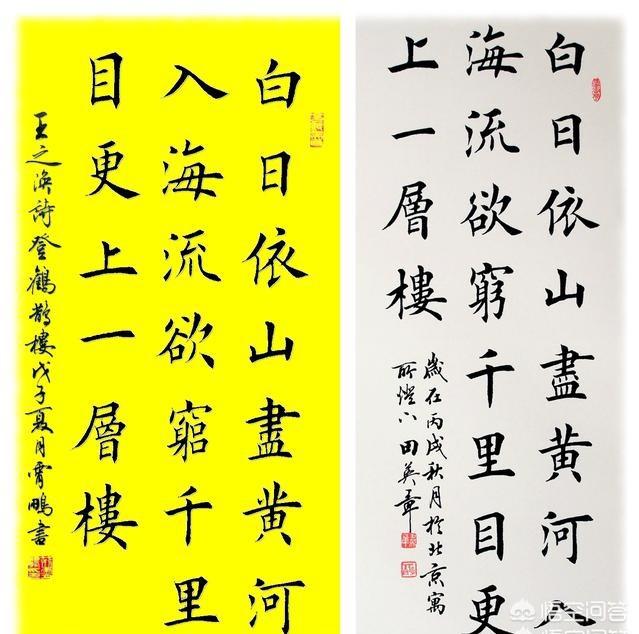 白日依山盡黄河
入海流欲窮千里
目更上一層樓
王之渙詩登鸛鵲樓戊子夏月霄鵬書
白日依山盡黄河入
海流欲窮千里目更
上一層樓
歲在丙戌秋月於北京寓
所燈下田英章
悟空问答